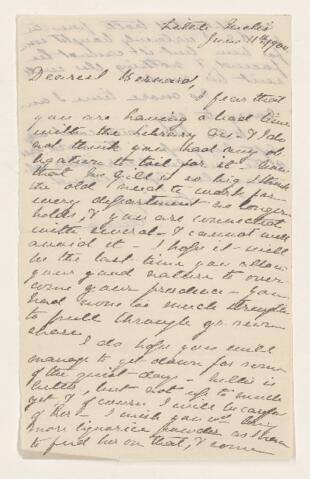 June 11th 1900
Dearest Bernard,
I fear that
you are having a hard time
with the Library &c. & I do
not think you had any
to toil for it - now
that McGill is so big I think
the old idea to work for
every department no longer
holds, & you are connected
with several - & cannot well
avoid it - I hope it will
be the last time you allow
your good nature to over
come your prudence - you
had none too much strength
to pull through yr. own
share.
I do hope you will
manage to get down for some
of the quiet days -
better, but not up to much
yet & of course I will be careful
of her - I wish you wd.
more liquorice powder as I have
to her on that, & come